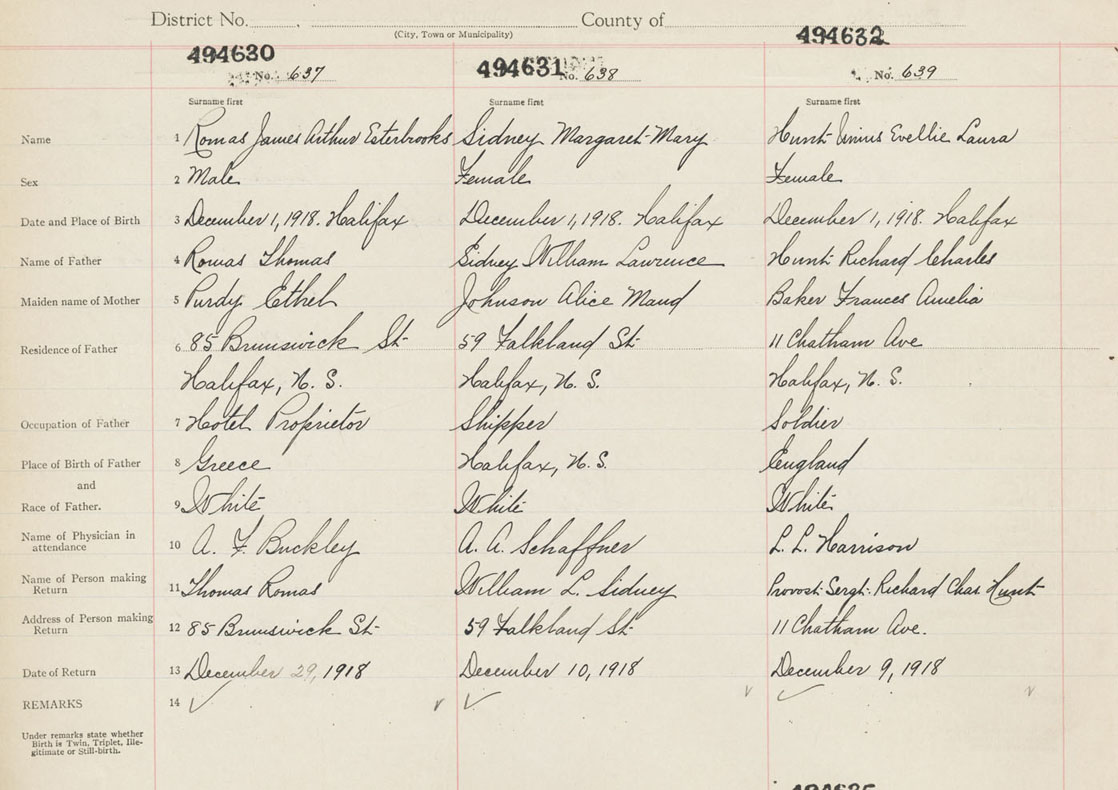 District No. County of
(City, Town or Municipality)
494630 494631 494632
No. 637 No. 638 No. 639
Surname first Surname first Surname first
Name 1 Romas James Arthur Esterbrooks Sidney Margaret Mary Hunt Evellie Laura
Sex 2 Male Female Female
Date and Place of Birth 3 December 1, 1918. Halifax December 1, 1918. Halifax December 1, 1918. Halifax
Name of Father 4 Romas Thomas Sidney William Lawrence Hunt Richard Charles
Maiden name of Mother 5 Purdy Ethel Johnson Alice Maud Baker Frances Amelia
Residence of Father 6 85 Brunswick St 59 Falkland St 11 Chatham Ave
Halifax, N. S. Halifax, N. S. Halifax, N. S.
Occupation of Father 7 Hotel Proprietor Shipper Soldier
Place of Birth of Father 8 Greece Halifax, N. S. England
and
Race of Father. 9 White White White
Name of Physician in
attendance 10 A. F. Buckley A. A. Schaffner L. L. Harrison
Name of Person making
Return 11 Thomas Romas William L. Sidney Provost Sergt. Richard Chas Hunt
Address of Person making
Return 12 85 Brunswick St 59 Falkland St 11 Chatham Ave.
Date of Return 13 December 29, 1918 December 10, 1918 December 9, 1918
REMARKS 14
Under remarks state whether
Birth is Twin, Triplet, Ille-
gitimate or Still-birth.